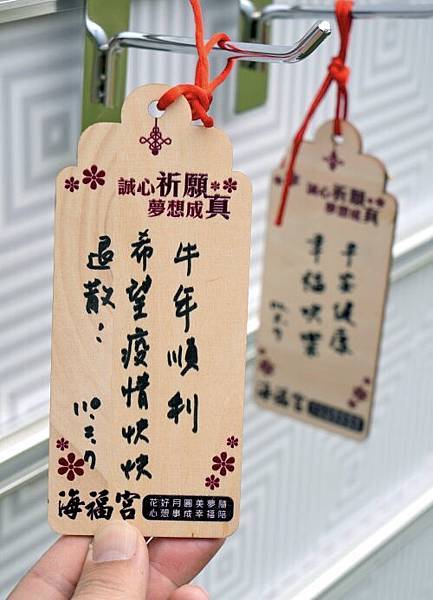 誠心祈願
夢想成真
牛年順利
希望疫情快快
退散：
110.3.7
海福宮
花好月圓美夢隨
心想事成幸福陪
誠心祈願
夢想成真
平安健康
幸福快樂
海福宮